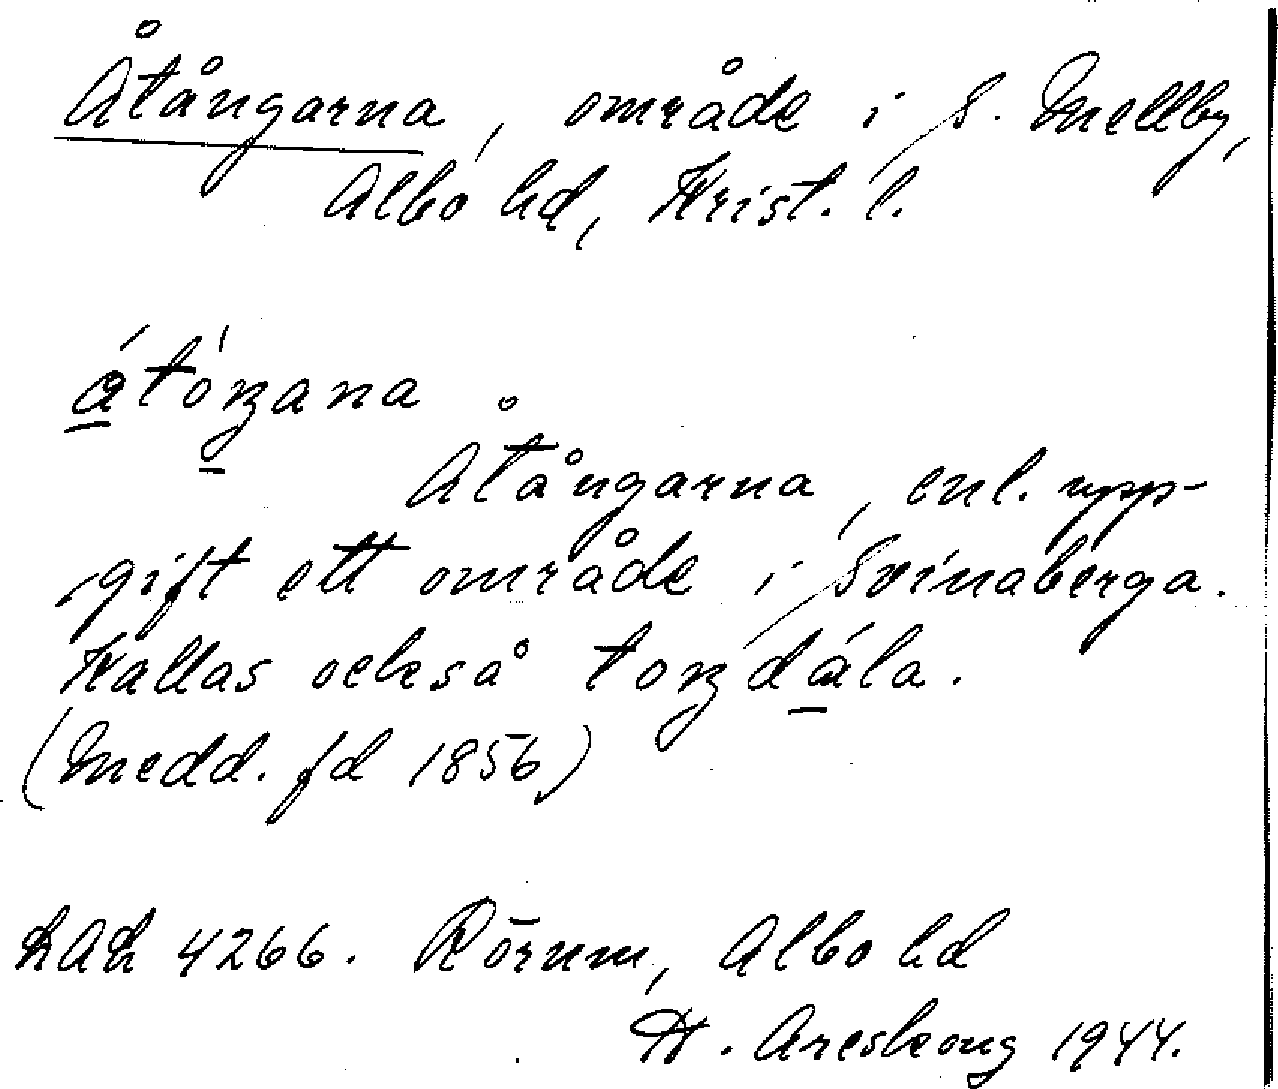 Åtångarna, område i S. Mellby,
Albo hd, Krist. l.
átóŋana
Åtångarna, enl. upp-
gift ett område i Svinaberga.
Kallas också toŋdála.
(Medd. fd 1856)
LAL 4266. Rörum, Albo hd
H. Areskoug 1944.